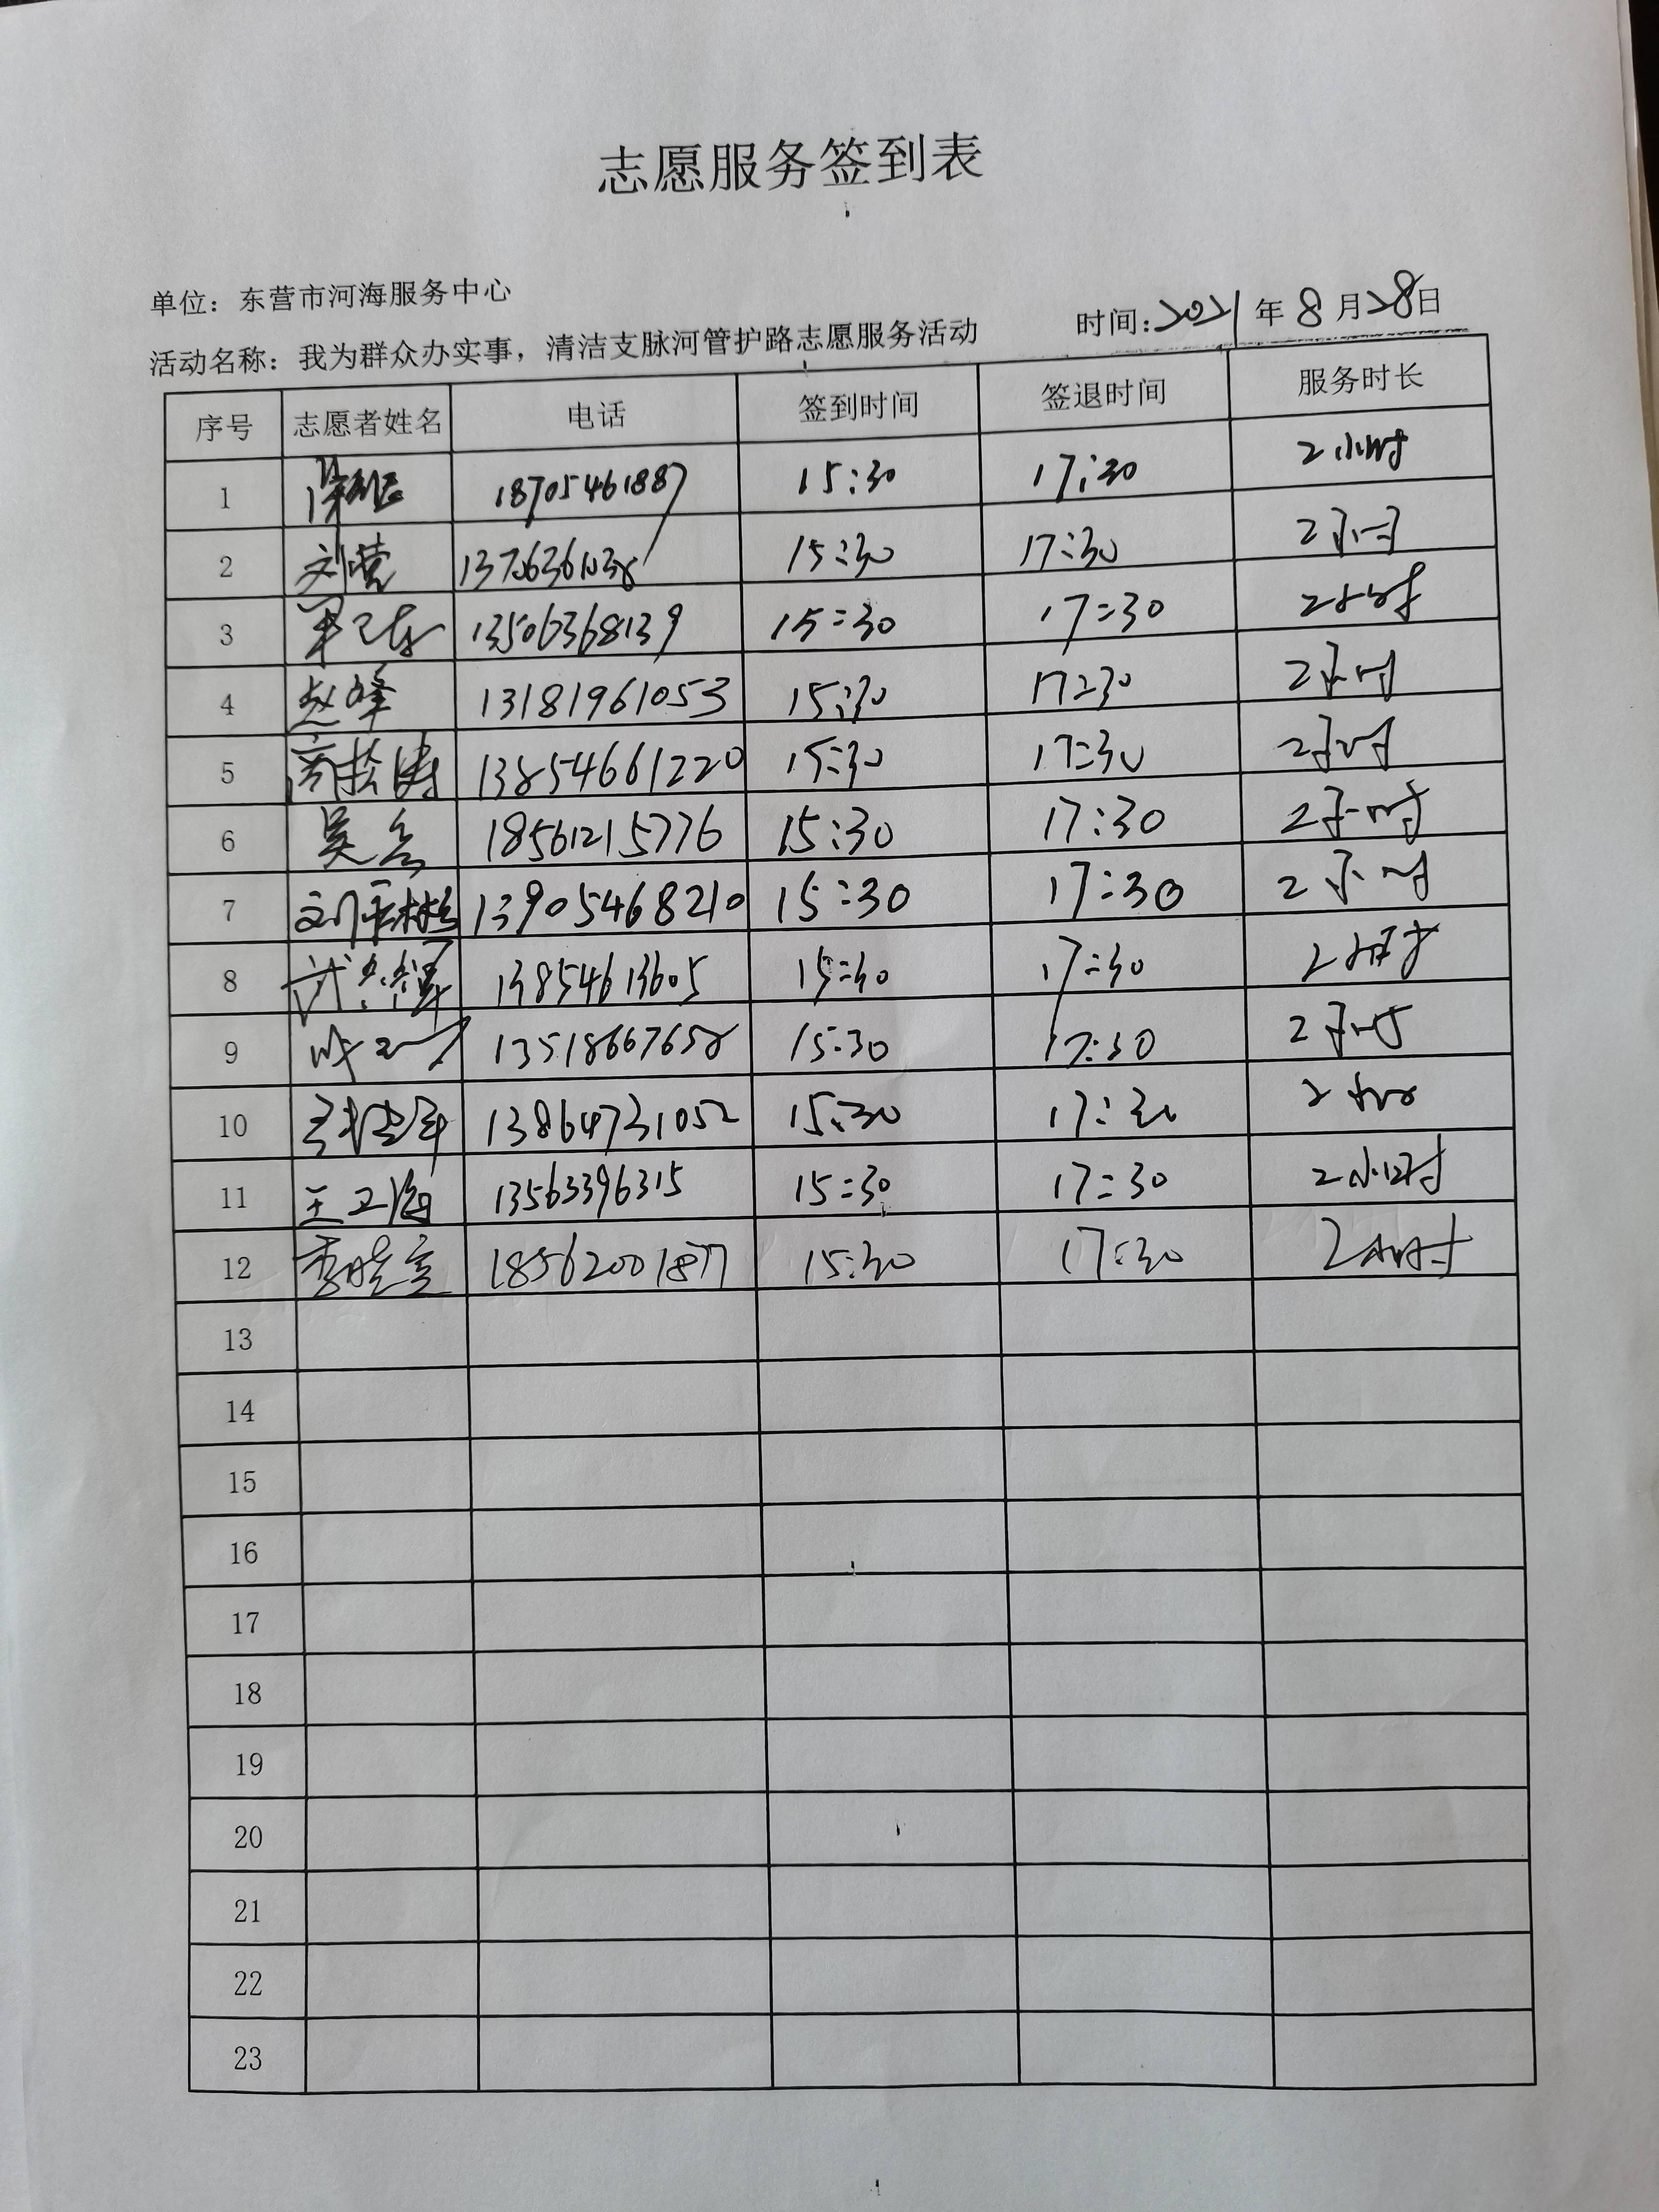 志愿服务签到表
单位：东营市河海服务中心
时间:2021年8月28日
活动名称：我为群众办实事，清洁支脉河管护路志愿服务活动
序号 志愿者姓名 电话 签到时间 签退时间 服务时长
1 18705461887 15:30 17:30 2小时
2 刘营 15:30 17:30 2小时
3 13506368139 15:30 17:30 2小时
4 赵峰 13181961053 15:30 17:30 2小时
5 商松涛 13854661220 15:30 17:30 2小时
6 吴 18561215776 15:30 17:30 2小时
7 13905468210 15:30 17:30 2小时
8 13854613605 15:30 17:30 2小时
9 13518667658 15:30 17:30 2小时
10 13864731052 15:30 17:30 2小时
11 王卫海 13563396315 15:30 17:30 2小时
12 李晓亮 18562001877 15:30 17:30 2小时
13
14
15
16
17
18
19
20
21
22
23